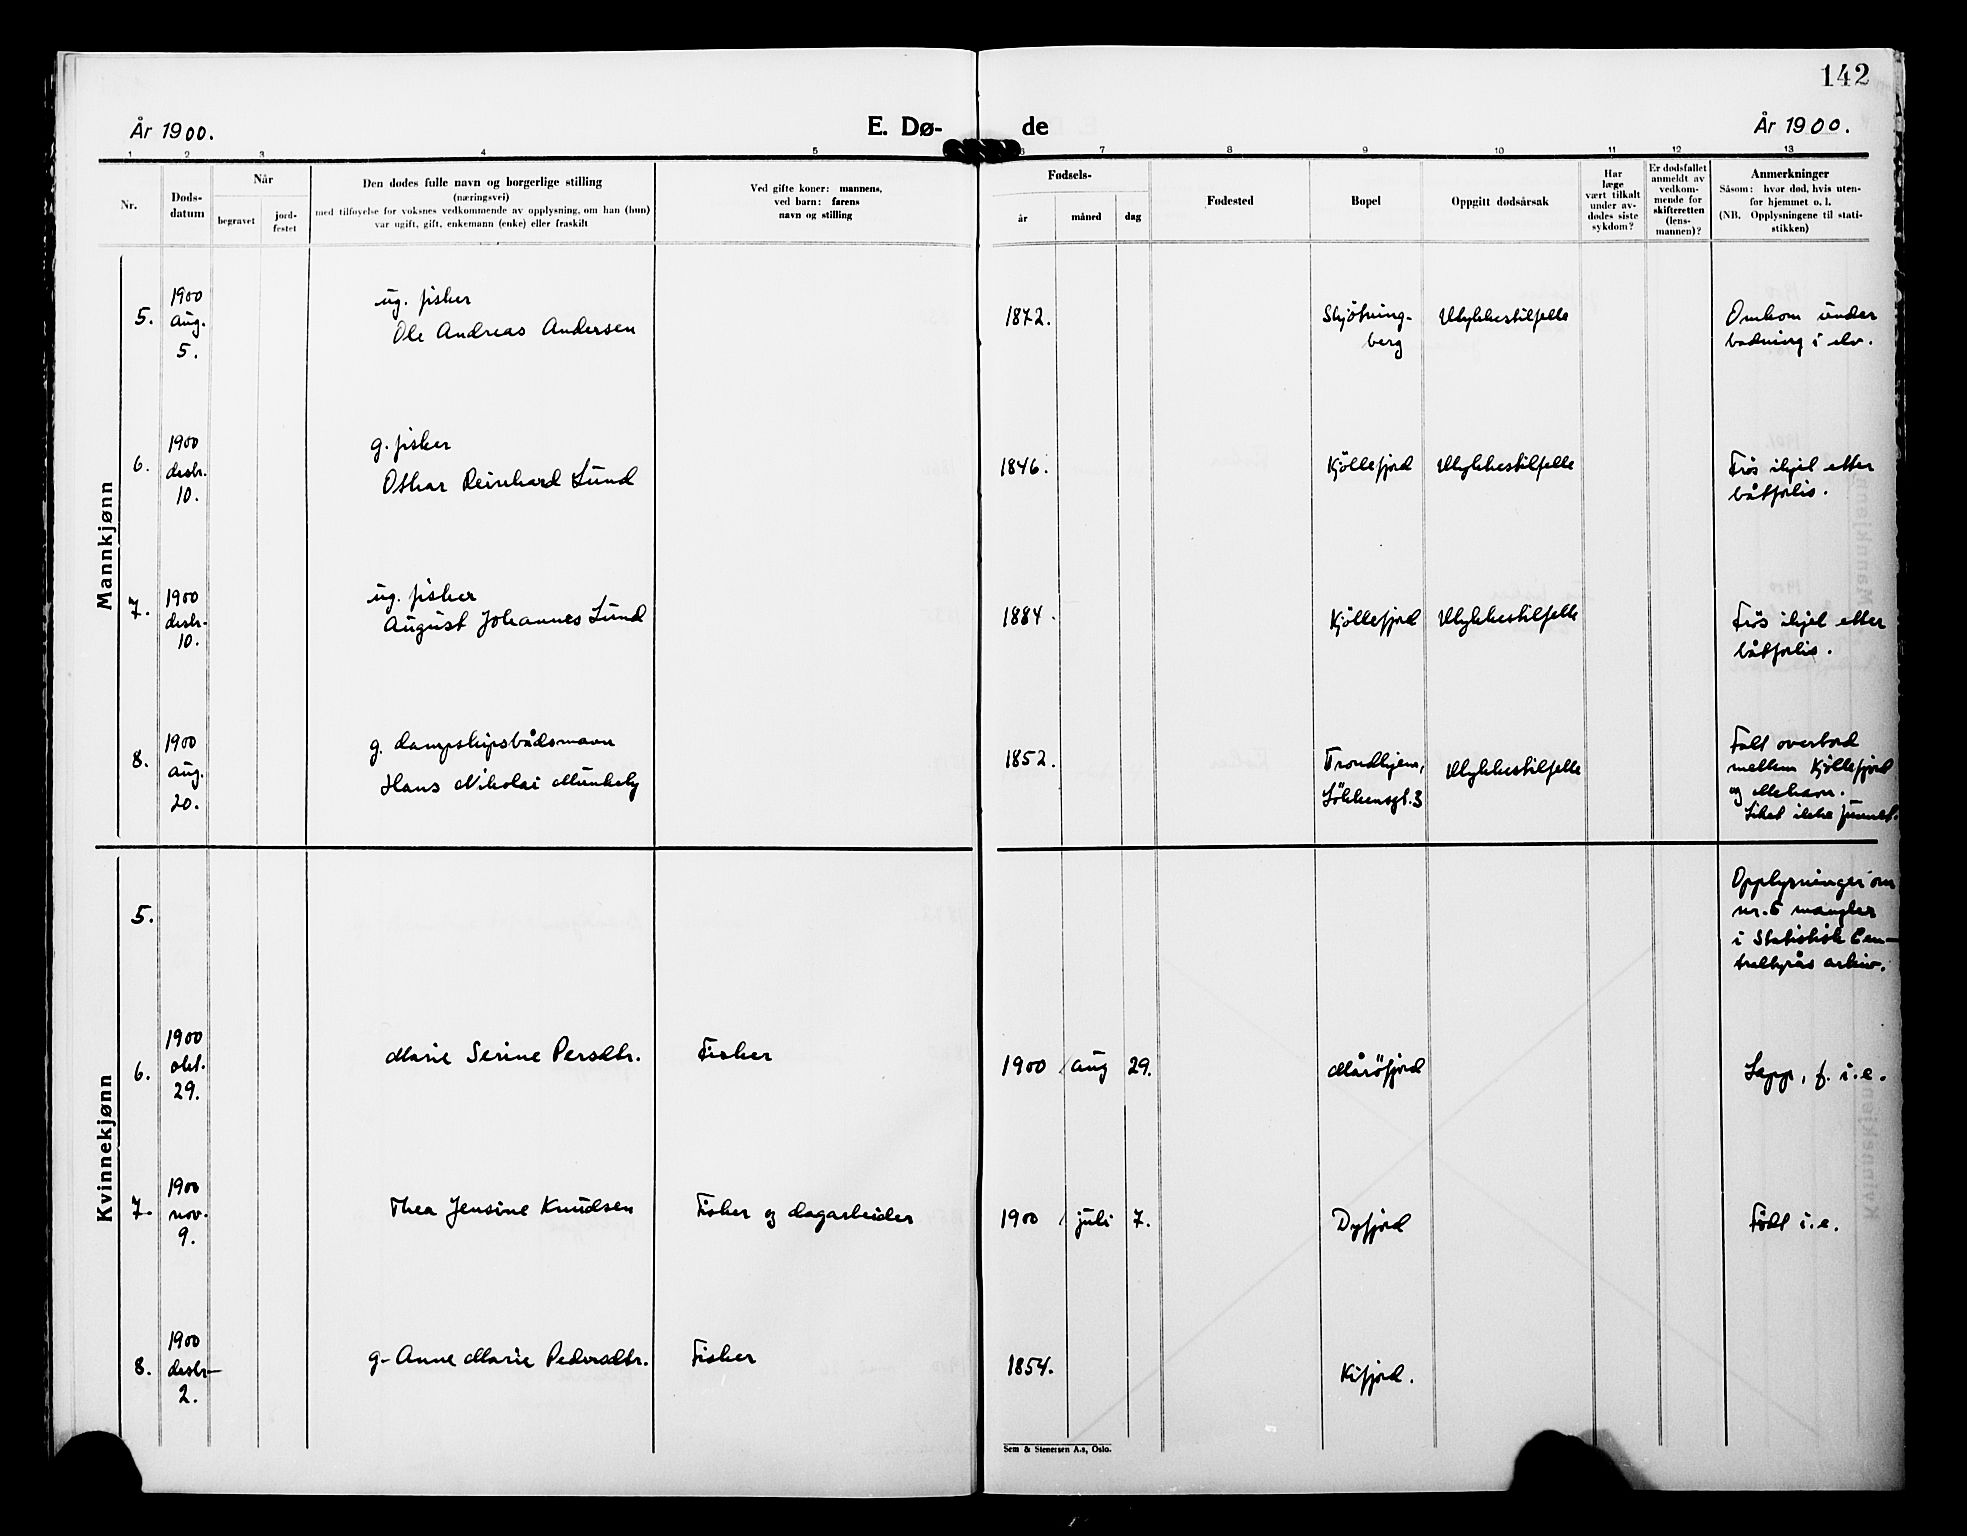 142
År 1900.
E. Dø-
de
År 1900.
1 2 3 4 5 6 7 8 9 10 11 12 13
Nr.
Døds-
datum
Når
begravet
jord-
festet
Den dødes fulle navn og borgerlige stilling
(næringsvei)
med tilføyelse for voksnes vedkommende av opplysning, om han (hun)
var ugift, gift, enkemann (enke) eller fraskilt
Ved gifte koner: mannens,
ved barn: farens
navn og stilling
Fødsels-
år
måned
dag
Fødested
Bopel
Oppgitt dødsårsak
Har
læge
vært tilkalt
under av-
dødes siste
sykdom?
Er dødsfallet
anmeldt av
vedkom-
mende for
skifteretten
(lens-
mannen)?
Anmerkninger
Såsom: hvor død, hvis uten-
for hjemmet o. l.
(NB. Opplysningene til stati-
stikken)
Mannkjønn
5.
1900
aug.
5.
ug. fisker
Ole Andreas Andersen
1872.
Skjötning-
berg
Ulykkestilfelle
Omkom under
badning i elv.
6.
1900
desbr.
10.
g. fisker
Othar Reinhard Lund
1846.
Kjöllefjord
Ulykkestilfelle
Frös ihjel etter
båtforlis.
7.
1900
desbr.
10.
ug. fisker
August Johannes Lund
1884.
Kjöllefjord
Ulykkestilfelle
Frös ihjel etter
båtforlis.
8.
1900
aug.
20.
g. dampskipsbådsmann
Hans Nikolai Munkeby
1852.
Trondhjem,
Lökkensgt. 3
Ulykkestilfelle
Falt overbord
mellem Kjöllefjord
og Mehavn.
Liket ikke funnet.
Kvinnekjønn
5.
Opplysninger om
nr. 5 mangler
i Statistisk Cen-
tralbyrås arkiv.
6.
1900
okt.
29.
Marie Serine Persdtr.
Fisker
1900 / aug 29.
Mårøfjord
Lapp, f. i. e.
7.
1900
nov.
9.
Thea Jensine Knudsen
Fisker og dagarbeider
1900 / juli 7.
Dyfjord
Født i. e.
8.
1900
desbr.
2.
g. Anne Marie Pedersdtr.
Fisker
1854.
Kifjord.
Sem & Stenersen A.s, Oslo.